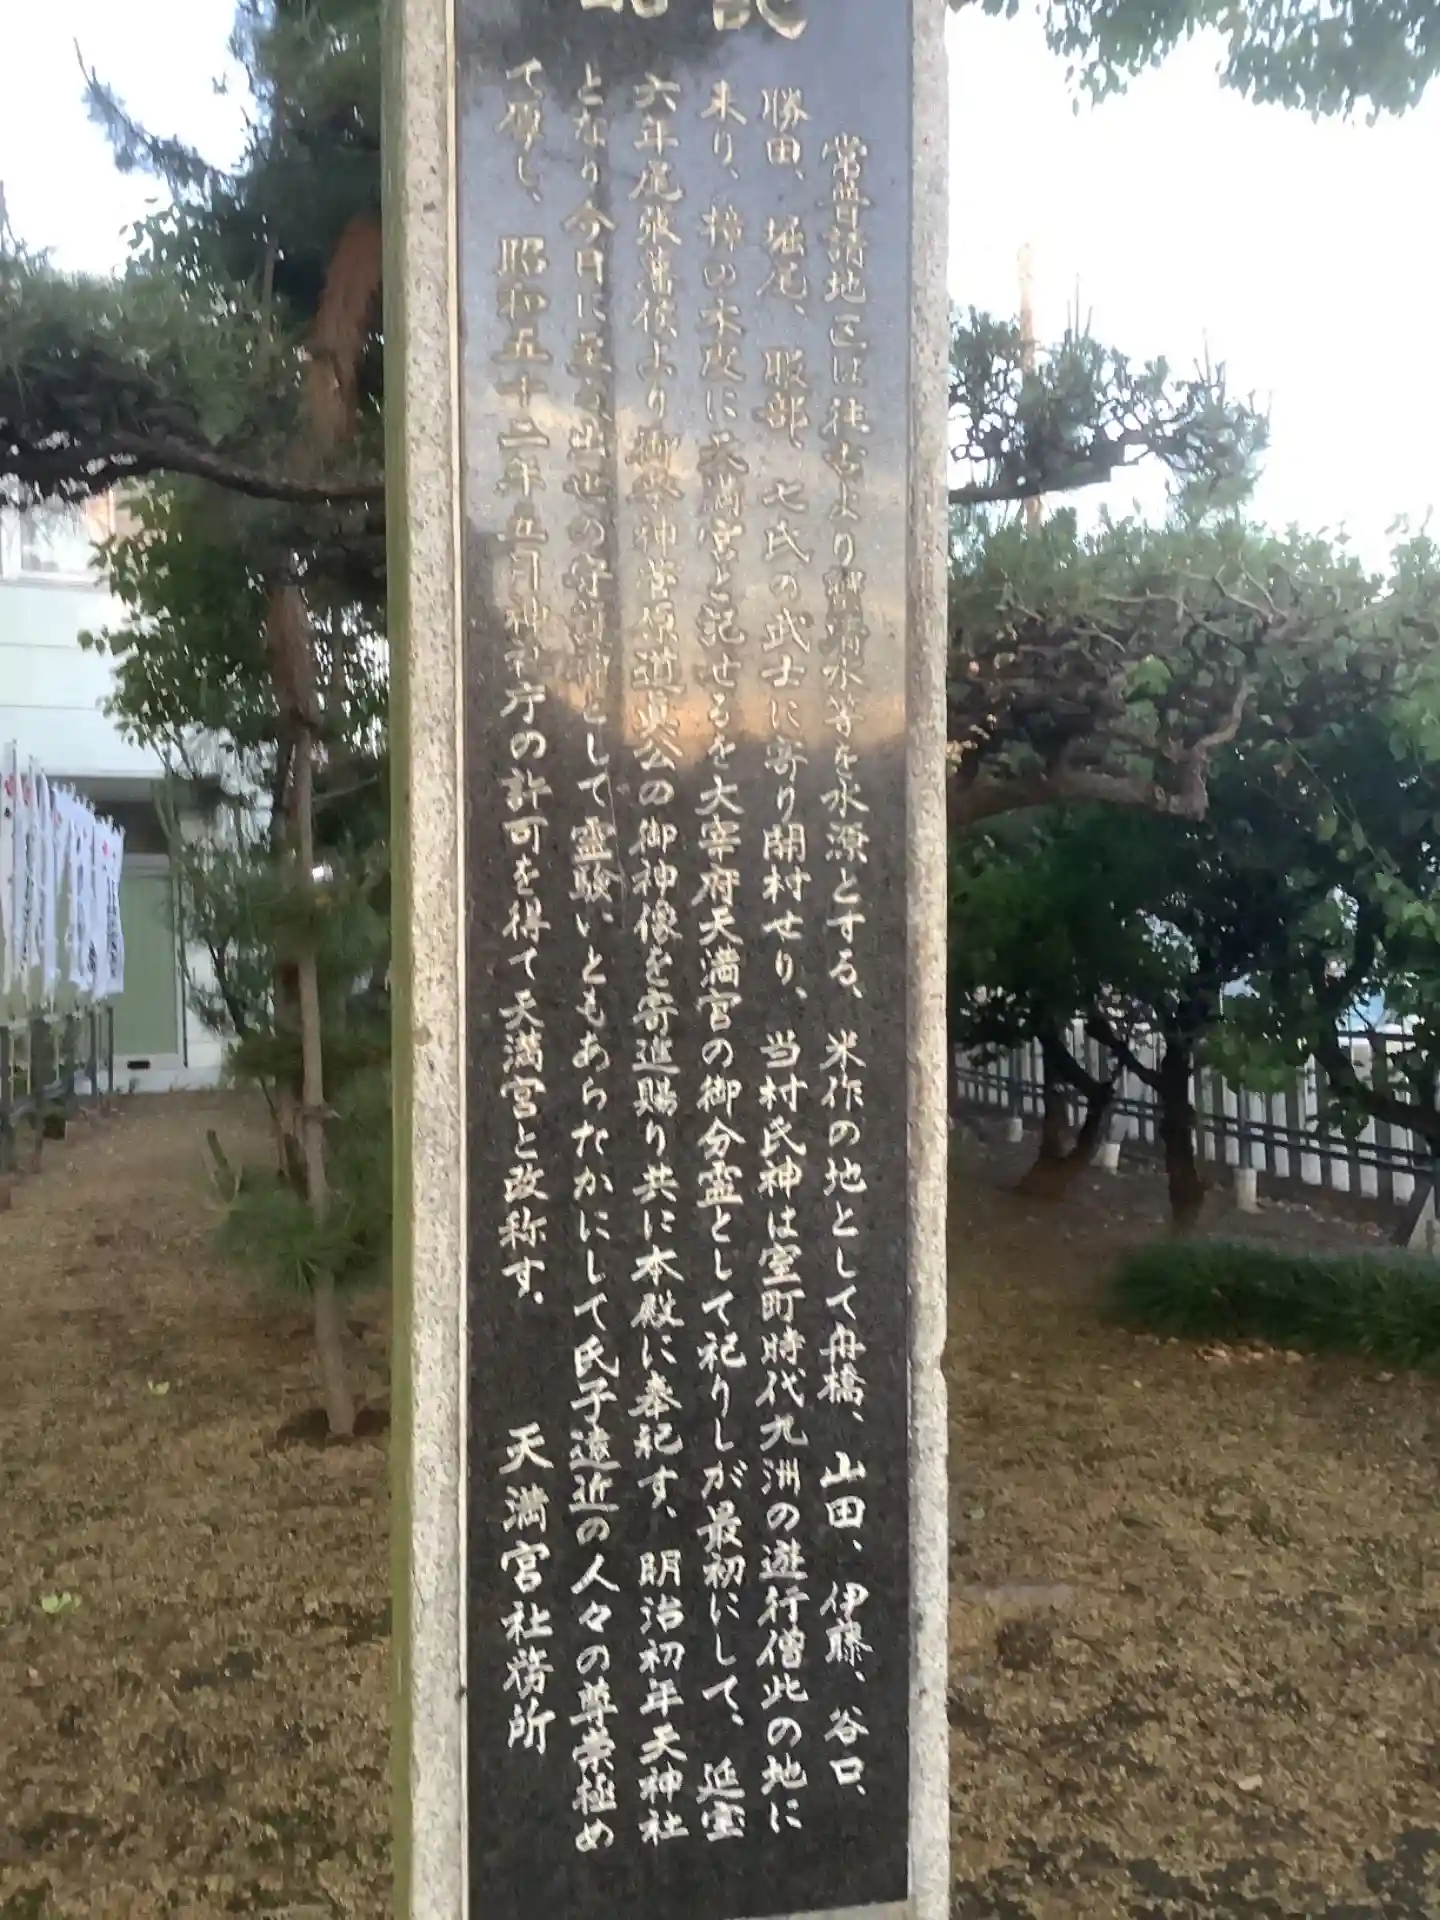 記
常普請地区は往古より豊清水等を水源とする、米作の地として舟橋、山田、伊藤、谷口、
勝田、堀尾、服部、七氏の武士に寄り開村せり、当村氏神は室町時代九洲の遊行僧此の地に
来り、椿の木皮に天満宮と記せるを大宰府天満宮の御分霊として祀りしが最初にして、延宝
六年尾張藩侯より御祭神菅原道真公の御神像を寄進賜り共に本殿に奉祀す、明治初年天神社
となり今日に至る出世の守護神として霊験いともあらたかにして氏子遠近の人々の尊崇極め
て厚し、昭和五十二年五月神社庁の許可を得て天満宮と改称す、
天満宮社務所